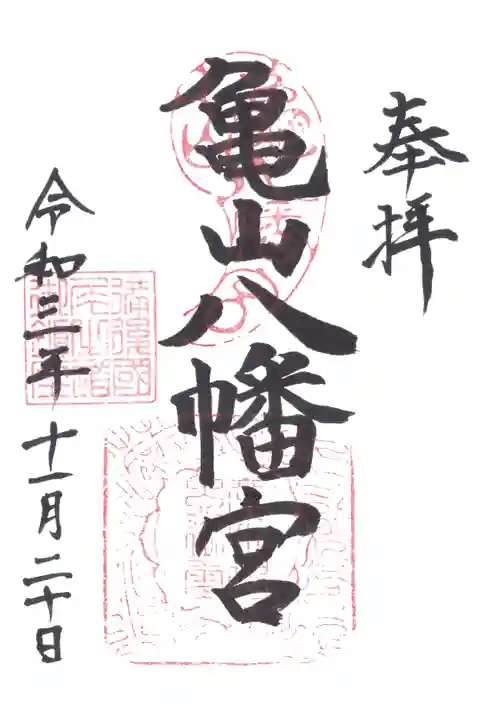 奉拝
亀山八幡宮
令和三年十一月二十日